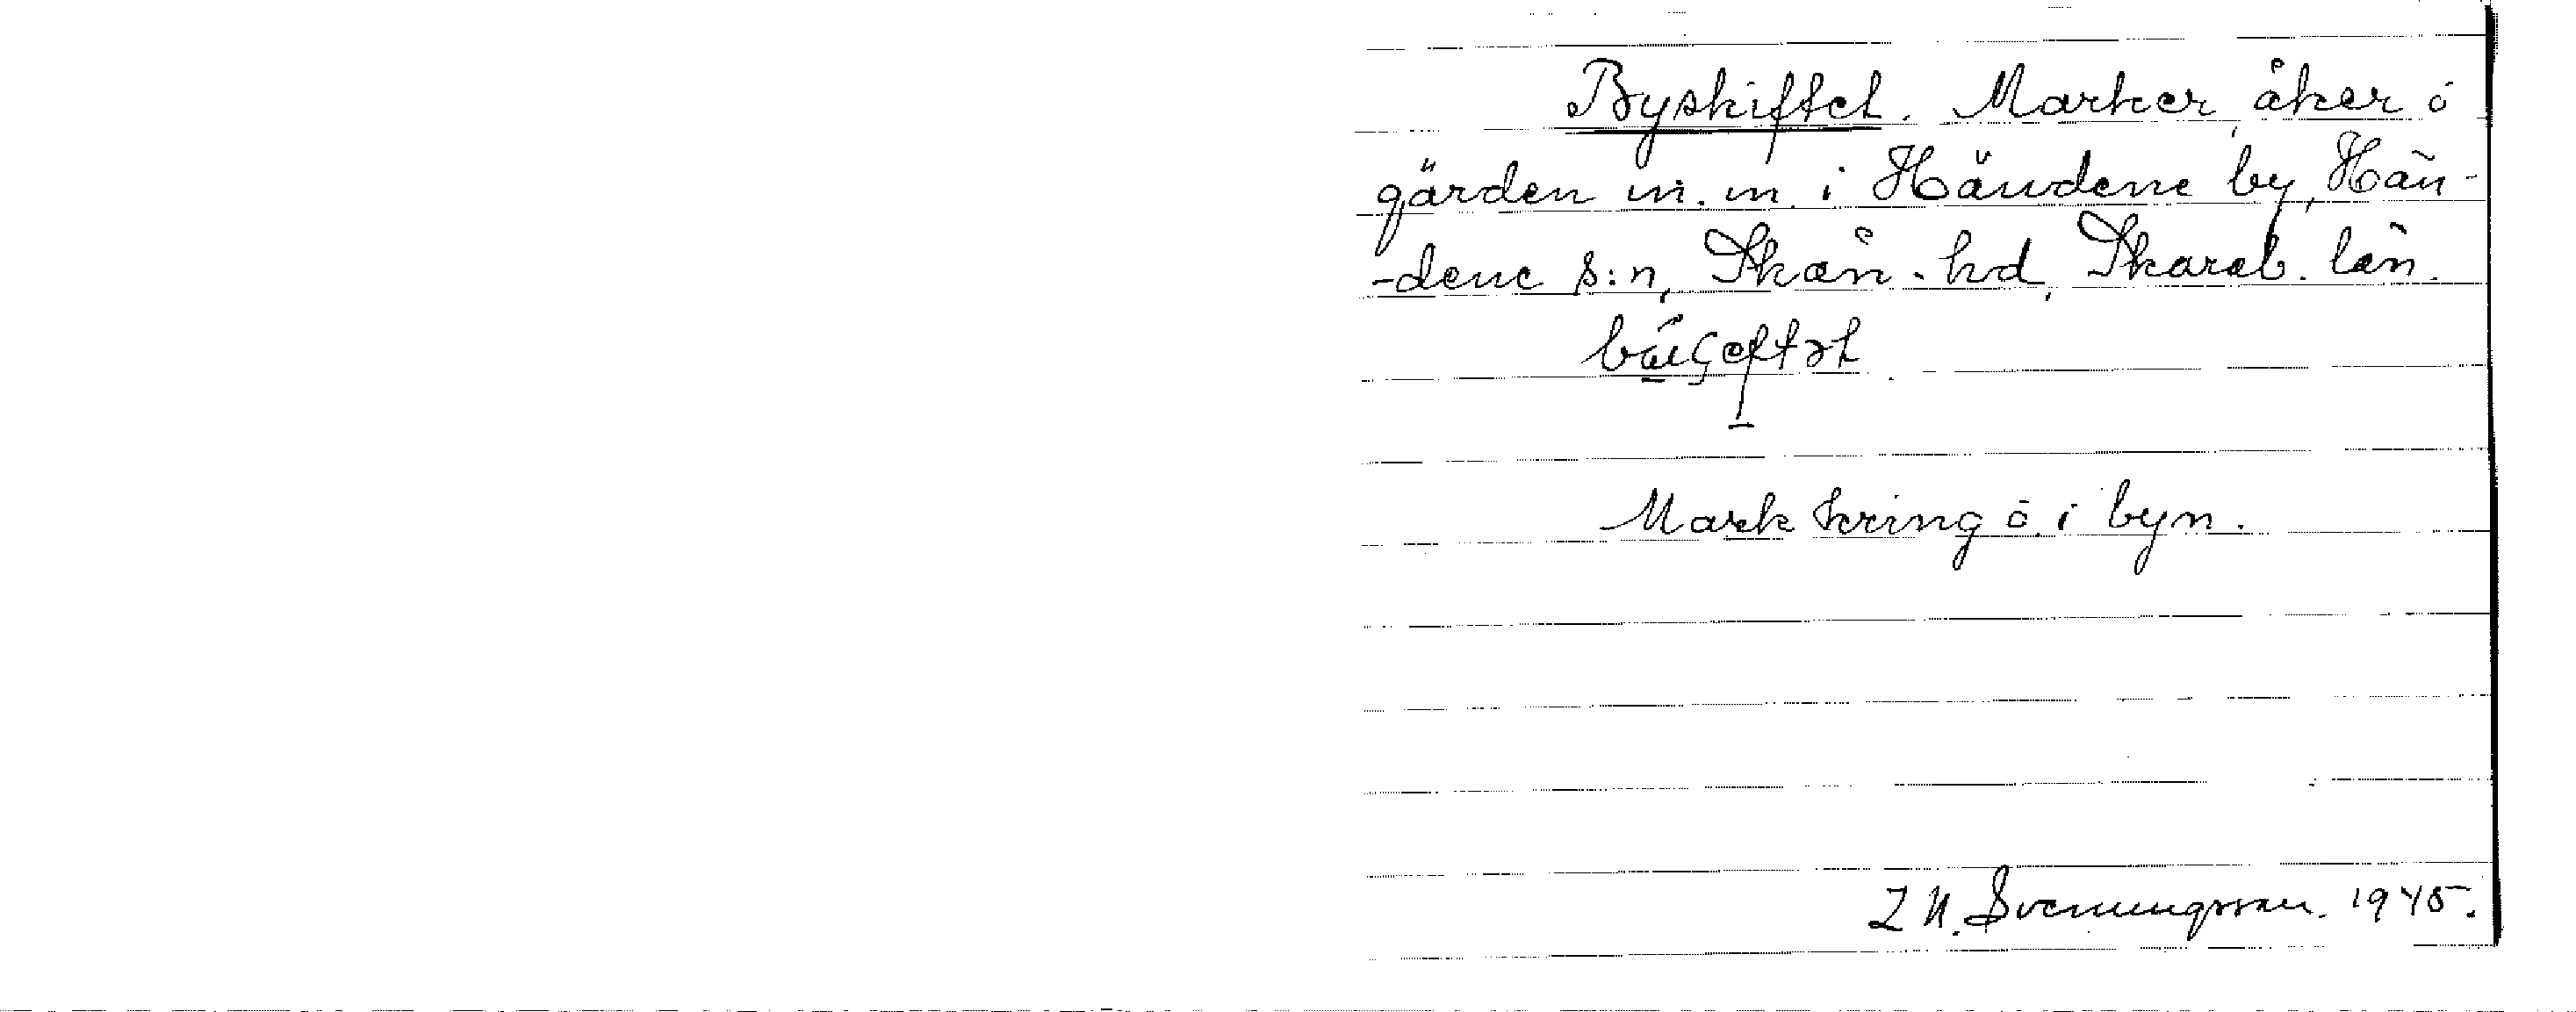 Byskiftet. Marker, åker ó
gärden m.m. i Händene by, Hän-
-dene s:n, Skån. hd, Skarab. län.
Mark kring ó i byn.
Z N. Svenungsson. 1945.